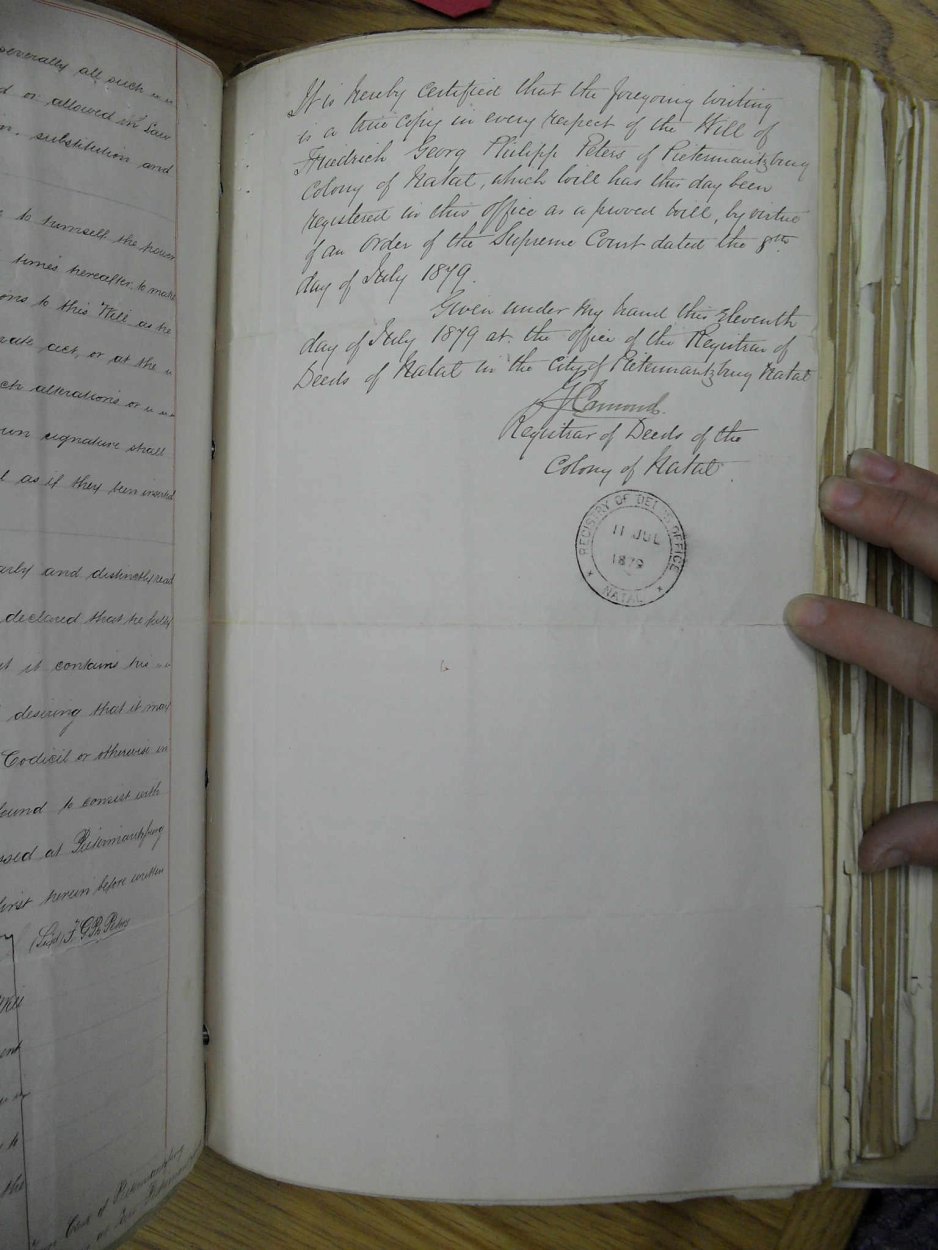 severally all such
d or allowed in Law
n, substitution and
to himself the power
times hereafter, to make
ons to this Will as he
vate act, or at the
ch alterations or
own signature shall
l as if they been inserted
arly and distinctly read
declared that he fully
at it contains his
desiring that it may
Codicil or otherwise in
found to consist with
ssed at Pietermaritzburg
first herein before written
(Sigd) F. G. Ph. Peters
Will
ent
to
the
It is hereby certified that the foregoing writing
is a true copy in every respect of the Will of
Friedrich Georg Philipp Peters of Pietermaritzburg
Colony of Natal, which will has this day been
registered in this office as a proved will, by virtue
of an Order of the Supreme Court dated the 8th
day of July 1879.
Given under my hand this Eleventh
day of July 1879 at the office of the Registrar of
Deeds of Natal in the City of Pietermaritzburg Natal
Registrar of Deeds of the
Colony of Natal.
REGISTRY OF DEEDS OFFICE
11 JUL
1879
* NATAL *